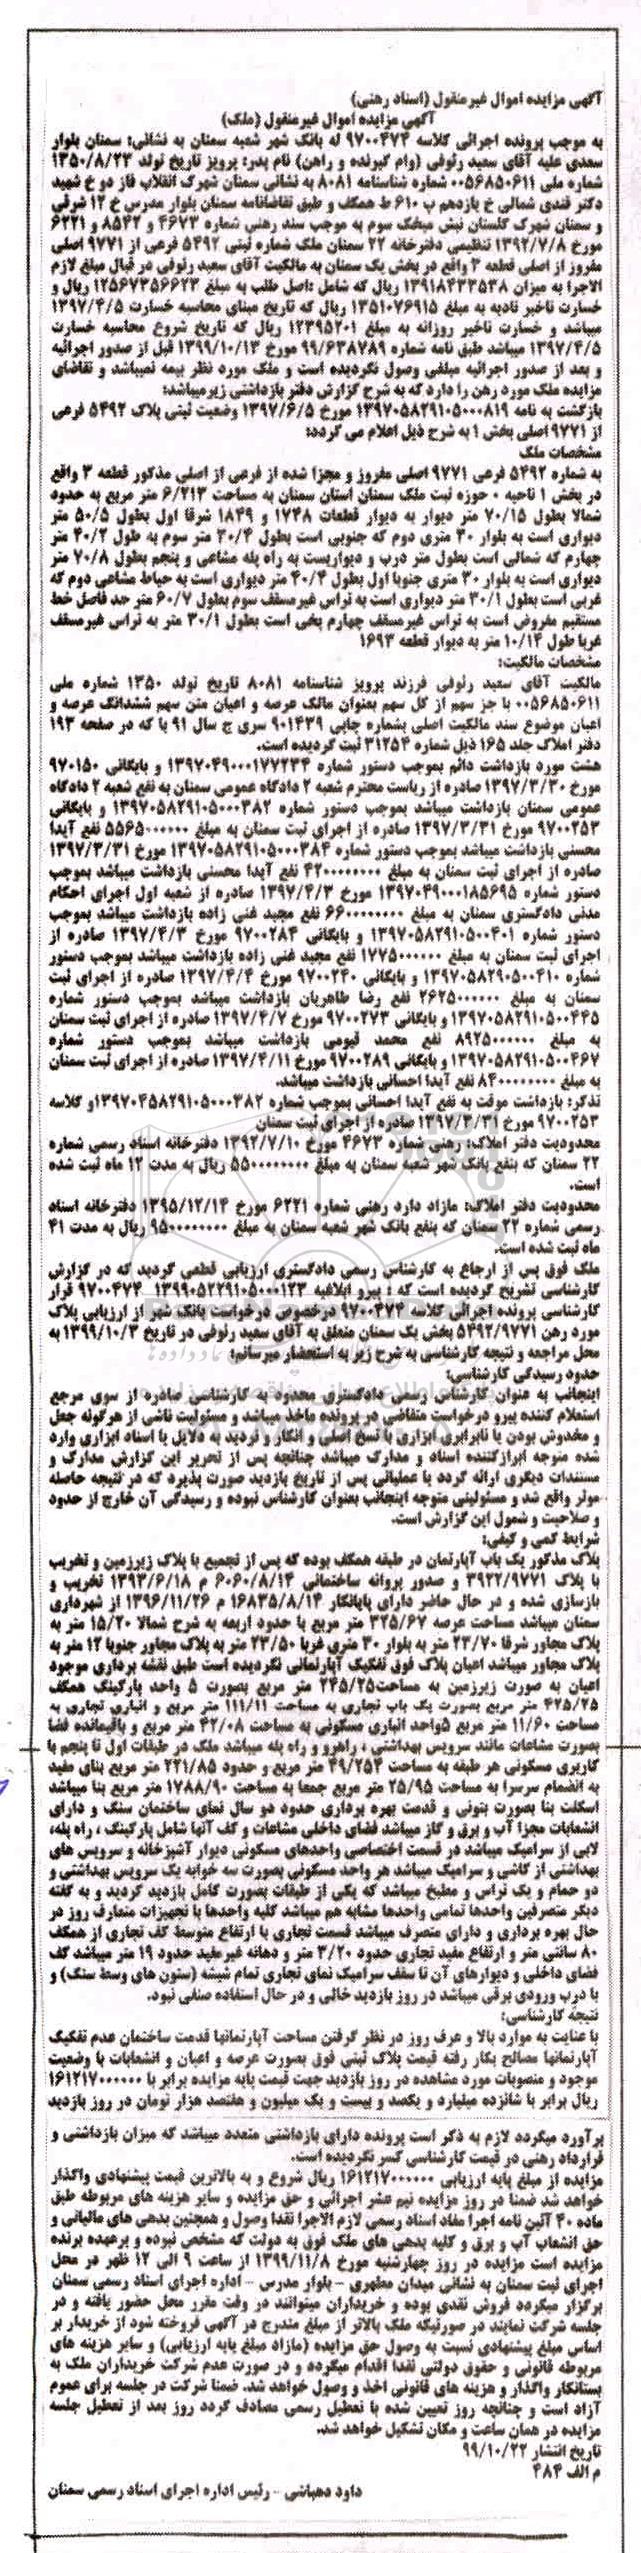 آگهی مزایده اموال غیرمنقول (اسناد رهنی)
آگهی مزایده اموال غیرمنقول (ملک)
به موجب پرونده اجرائی کلاسه ۹۷۰۰۴۷۴ له بانک شهر شعبه سمنان به نشانی: سمنان بلوار
سعدی علیه آقای سعید رئوفی (وام گیرنده و راهن) نام پدر: پرویز تاریخ تولد ۱۳۵۰/۸/۲۳
شماره ملی ۰۰۵۶۸۵۰۶۱۱ شماره شناسنامه ۸۰۸۱ به نشانی سمنان شهرک انقلاب فاز دو خ شهید
دکتر قندی شمالی خ یازدهم پ ۶۱۰ ط همکف و طبق تقاضانامه سمنان بلوار مدرس خ ۱۲ شرقی
و سمنان شهرک گلستان نبش میخک سوم به موجب سند رهنی شماره ۴۶۷۳ و ۸۵۴۲ و ۶۲۲۱
مورخ ۱۳۹۲/۷/۸ تنظیمی دفترخانه ۲۲ سمنان ملک شماره ثبتی ۵۴۹۲ فرعی از ۹۷۷۱ اصلی
مفروز از اصلی قطعه ۳ واقع در بخش یک سمنان به مالکیت آقای سعید رئوفی در قبال مبلغ لازم
الاجرا به میزان ۱۳۹۱۸۴۳۳۵۳۸ ریال که شامل :اصل طلب به مبلغ ۱۲۵۶۷۳۵۶۶۲۳ ریال و
خسارت تاخیر تادیه به مبلغ ۱۳۵۱۰۷۶۹۱۵ ریال که تاریخ مبنای محاسبه خسارت ۱۳۹۷/۴/۵
میباشد و خسارت تاخیر روزانه به مبلغ ۱۲۳۹۵۲۰۱ ریال که تاریخ شروع محاسبه خسارت
۱۳۹۷/۴/۵ میباشد طبق نامه شماره ۹۹/۶۳۸۷۸۹ مورخ ۱۳۹۹/۱۰/۱۳ قبل از صدور اجرائیه
و بعد از صدور اجرائیه مبلغی وصول نگردیده است و ملک مورد نظر بیمه نمیباشد و تقاضای
مزایده ملک مورد رهن را دارد که به شرح گزارش دفتر بازداشتی زیرمیباشد:
بازگشت به نامه ۱۳۹۷۰۵۸۲۹۱۰۵۰۰۰۸۱۹ مورخ ۱۳۹۷/۶/۵ وضعیت ثبتی پلاک ۵۴۹۲ فرعی
از ۹۷۷۱ اصلی بخش ۱ به شرح ذیل اعلام می گردد:
مشخصات ملک
به شماره ۵۴۹۲ فرعی ۹۷۷۱ اصلی مفروز و مجزا شده از فرعی از اصلی مذکور قطعه ۳ واقع
در بخش ۱ ناحیه ۰ حوزه ثبت ملک سمنان استان سمنان به مساحت ۶/۲۱۳ متر مربع به حدود
شمالا بطول ۷۰/۱۵ متر دیوار به دیوار قطعات ۱۷۴۸ و ۱۸۴۹ شرقا اول بطول ۵۰/۵ متر
دیواری است به بلوار ۳۰ متری دوم که جنوبی است بطول ۳۰/۴ متر سوم به طول ۴۰/۲ متر
چهارم که شمالی است بطول متر درب و دیواریست به راه پله مشاعی و پنجم بطول ۷۰/۸ متر
دیواری است به بلوار ۳۰ متری جنوبا اول بطول ۴۰/۴ متر دیواری است به حیاط مشاعی دوم که
غربی است بطول ۳۰/۱ متر دیواری است به تراس غیرمسقف سوم بطول ۶۰/۷ متر حد فاصل خط
مستقیم مفروض است به تراس غیرمسقف چهارم پخی است بطول ۳۰/۱ متر به تراس غیرمسقف
غربا طول ۱۰/۱۴ متر به دیوار قطعه ۱۶۹۳
مشخصات مالکیت:
مالکیت آقای سعید رئوفی فرزند پرویز شناسنامه ۸۰۸۱ تاریخ تولد ۱۳۵۰ شماره ملی
۰۰۵۶۸۵۰۶۱۱ با جز سهم از کل سهم بعنوان مالک عرصه و اعیان متن سهم ششدانگ عرصه و
اعیان موضوع سند مالکیت اصلی بشماره چاپی ۹۰۱۴۳۹ سری ج سال ۹۱ با که در صفحه ۱۹۳
دفتر املاک جلد ۱۶۵ ذیل شماره ۳۱۲۵۴ ثبت گردیده است.
هشت مورد بازداشت دائم بموجب دستور شماره ۱۳۹۷۰۴۹۰۰۰۱۷۷۲۳۴ و بایگانی ۹۷۰۱۵۰
مورخ ۱۳۹۷/۳/۳۰ صادره از ریاست محترم شعبه ۲ دادگاه عمومی سمنان به نفع شعبه ۲ دادگاه
عمومی سمنان بازداشت میباشد بموجب دستور شماره ۱۳۹۷۰۵۸۲۹۱۰۵۰۰۰۳۸۲ و بایگانی
۹۷۰۰۲۵۳ مورخ ۱۳۹۷/۳/۳۱ صادره از اجرای ثبت سمنان به مبلغ ۵۵۶۵۰۰۰۰۰۰ نفع آیدا
محسنی بازداشت میباشد بموجب دستور شماره ۱۳۹۷۰۵۸۲۹۱۰۵۰۰۰۳۸۴ مورخ ۱۳۹۷/۳/۳۱
صادره از اجرای ثبت سمنان به مبلغ ۴۲۰۰۰۰۰۰۰۰ نفع آیدا محسنی بازداشت میباشد بموجب
دستور شماره ۱۳۹۷۰۴۹۰۰۰۱۸۵۶۹۵ مورخ ۱۳۹۷/۴/۳ صادره از شعبه اول اجرای احکام
مدنی دادگستری سمنان به مبلغ ۶۶۰۰۰۰۰۰۰۰ نفع مجید غنی زاده بازداشت میباشد بموجب
دستور شماره ۱۳۹۷۰۵۸۲۹۱۰۵۰۰۴۰۱ و بایگانی ۹۷۰۰۲۸۴ مورخ ۱۳۹۷/۴/۳ صادره از
اجرای ثبت سمنان به مبلغ ۱۷۷۵۰۰۰۰۰۰ نفع مجید غنی زاده بازداشت میباشد بموجب دستور
شماره ۱۳۹۷۰۵۸۲۹۱۰۵۰۰۴۱۰ و بایگانی ۹۷۰۰۲۴۰ مورخ ۱۳۹۷/۴/۴ صادره از اجرای ثبت
سمنان به مبلغ ۲۶۲۵۰۰۰۰۰۰ نفع رضا طاهریان بازداشت میباشد بموجب دستور شماره
۱۳۹۷۰۵۸۲۹۱۰۵۰۰۴۴۵ و بایگانی ۹۷۰۰۲۷۳ مورخ ۱۳۹۷/۴/۷ صادره از اجرای ثبت سمنان
به مبلغ ۸۹۲۵۰۰۰۰۰۰ نفع محمد قیومی بازداشت میباشد بموجب دستور شماره
۱۳۹۷۰۵۸۲۹۱۰۵۰۰۴۶۷ و بایگانی ۹۷۰۰۲۸۹ مورخ ۱۳۹۷/۴/۱۱ صادره از اجرای ثبت سمنان
به مبلغ ۸۴۰۰۰۰۰۰۰۰ نفع آیدا احسانی بازداشت میباشد.
تذکر: بازداشت موقت به نفع آیدا احسانی بموجب شماره ۱۳۹۷۰۴۵۸۲۹۱۰۵۰۰۰۳۸۲و کلاسه
۹۷۰۰۲۵۳ مورخ ۱۳۹۷/۳/۳۱ صادره از اجرای ثبت سمنان
محدودیت دفتر املاک: رهنی شماره ۴۶۷۳ مورخ ۱۳۹۲/۷/۱۰ دفترخانه اسناد رسمی شماره
۲۲ سمنان که بنفع بانک شهر شعبه سمنان به مبلغ ۵۵۰۰۰۰۰۰۰۰ ریال به مدت ۱۲ ماه ثبت شده
است.
محدودیت دفتر املاک: مازاد دارد رهنی شماره ۶۲۲۱ مورخ ۱۳۹۵/۱۲/۱۴ دفترخانه اسناد
رسمی شماره ۲۲ سمنان که بنفع بانک شهر شعبه سمنان به مبلغ ۹۵۰۰۰۰۰۰۰۰ ریال به مدت ۴۱
ماه ثبت شده است.
ملک فوق پس از ارجاع به کارشناس رسمی دادگستری ارزیابی قطعی گردید که در گزارش
کارشناسی تشریح گردیده است که : پیرو ابلاغیه ۱۳۹۹۰۵۲۲۹۱۰۵۰۰۰۱۲۳ ۹۷۰۰۴۷۴ قرار
کارشناسی پرونده اجرائی کلاسه ۹۷۰۰۴۷۴ درخصوص درخواست بانک شهر از ارزیابی پلاک
مورد رهن ۵۴۹۲/۹۷۷۱ بخش یک سمنان متعلق به آقای سعید رئوفی در تاریخ ۱۳۹۹/۱۰/۳ به
محل مراجعه و نتیجه کارشناسی به شرح زیر به استحضار میرسانم:
حدود رسیدگی کارشناسی:
اینجانب به عنوان کارشناس رسمی دادگستری محدود به کارشناسی صادره از سوی مرجع
استعلام کننده پیرو درخواست متقاضی در پرونده ماخذ میباشد و مسئولیت ناشی از هرگونه جعل
و مخدوش بودن یا نابرابری ابزاری با نسخ اصلی و انکار و تردید به دلایل یا اسناد ابزاری وارد
شده متوجه ابرازکننده اسناد و مدارک میباشد چنانچه پس از تحریر این گزارش مدارک و
مستندات دیگری ارائه گردد یا عملیاتی پس از تاریخ بازدید صورت پذیرد که در نتیجه حاصله
موثر واقع شد و مسئولیتی متوجه اینجانب بعنوان کارشناس نبوده و رسیدگی آن خارج از حدود
و صلاحیت و شمول این گزارش است.
شرایط کمی و کیفی:
پلاک مذکور یک باب آپارتمان در طبقه همکف بوده که پس از تجمیع با پلاک زیرزمین و تخریب
با پلاک ۳۹۲۲/۹۷۷۱ و صدور پروانه ساختمانی ۶۰۶۰/۸/۱۴ م ۱۳۹۳/۶/۱۸ تخریب و
بازسازی شده و در حال حاضر دارای پایانکار ۱۶۸۳۵/۸/۱۴ م ۱۳۹۶/۱۱/۲۶ از شهرداری
سمنان میباشد مساحت عرصه ۳۲۵/۶۷ متر مربع با حدود اربعه به شرح شمالا ۱۵/۲۰ متر به
پلاک مجاور شرقا ۲۲/۷۰ متر به بلوار ۳۰ متری غربا ۲۳/۵۰ متر به پلاک مجاور جنوبا ۱۲ متر به
پلاک مجاور میباشد اعیان پلاک فوق تفکیک آپارتمانی نگردیده است طبق نقشه برداری موجود
اعیان به صورت زیرزمین به مساحت۲۴۵/۲۵ متر مربع بصورت ۵ واحد پارکینگ همکف
۲۲۵/۲۵ متر مربع بصورت یک باب تجاری به مساحت ۱۱۱/۱۱ متر مربع و انباری تجاری به
مساحت ۱۱/۶۰ متر مربع ۵واحد انباری مسکونی به مساحت ۴۲/۰۸ متر مربع و باقیمانده فضا
بصورت مشاعات مانند سرویس بهداشتی ، راهرو و راه پله میباشد ملک در طبقات اول تا پنجم با
کاربری مسکونی هر طبقه به مساحت ۴۹/۲۵۴ متر مربع و حدود ۲۲۱/۸۵ متر مربع بنای مفید
به انضمام سرسرا به مساحت ۲۵/۹۵ متر مربع جمعا به مساحت ۱۷۸۸/۹۰ متر مربع بنا میباشد
اسکلت بنا بصورت بتونی و قدمت بهره برداری حدود دو سال نمای ساختمان سنگ و دارای
انشعابات مجزا آب و برق و گاز میباشد فضای داخلی مشاعات و کف آنها شامل پارکینگ ، راه پله،
لابی از سرامیک میباشد در قسمت اختصاصی واحدهای مسکونی دیوار آشپزخانه و سرویس های
بهداشتی از کاشی و سرامیک میباشد هر واحد مسکونی بصورت سه خوابه یک سرویس بهداشتی و
دو حمام و یک تراس و مطبخ میباشد که یکی از طبقات بصورت کامل بازدید گردید و به گفته
دیگر متصرفین واحدها تمامی واحدها مشابه هم میباشد کلیه واحدها با تجهیزات متعارف روز در
حال بهره برداری و دارای متصرف میباشد قسمت تجاری با ارتفاع متوسط کف تجاری از همکف
۸۰ سانتی متر و ارتفاع مفید تجاری حدود ۳/۲۰ متر و دهانه غیرمفید حدود ۱۹ متر میباشد کف
فضای داخلی و دیوارهای آن تا سقف سرامیک نمای تجاری تمام شیشه (ستون های وسط سنگ) و
با درب ورودی برقی میباشد در روز بازدید خالی و در حال استفاده صنفی نبود.
نتیجه کارشناسی:
با عنایت به موارد بالا و عرف روز در نظر گرفتن مساحت آپارتمانها قدمت ساختمان عدم تفکیک
آپارتمانها مصالح بکار رفته قیمت پلاک ثبتی فوق بصورت عرصه و اعیان و انشعابات با وضعیت
موجود و منصوبات مورد مشاهده در روز بازدید جهت قیمت پایه مزایده برابر با ۱۶۱۲۱۷۰۰۰۰۰۰
ریال برابر با شانزده میلیارد و یکصد و بیست و یک میلیون و هفتصد هزار تومان در روز بازدید
برآورد میگردد لازم به ذکر است پرونده دارای بازداشتی متعدد میباشد که میزان بازداشتی و
قرارداد رهنی در قیمت کارشناسی کسر نگردیده است.
مزایده از مبلغ پایه ارزیابی ۱۶۱۲۱۷۰۰۰۰۰۰ ریال شروع و به بالاترین قیمت پیشنهادی واگذار
خواهد شد ضمنا در روز مزایده نیم عشر اجرائی و حق مزایده و سایر هزینه های مربوطه طبق
ماده ۴۰ آئین نامه اجرا مفاد اسناد رسمی لازم الاجرا نقدا وصول و همچنین بدهی های مالیاتی و
حق انشعاب آب و برق و کلیه بدهی های ملک فوق به دولت که مشخص نبوده و برعهده برنده
مزایده است مزایده در روز چهارشنبه مورخ ۱۳۹۹/۱۱/۸ از ساعت ۹ الی ۱۲ ظهر در محل
اجرای ثبت سمنان به نشانی میدان مطهری – بلوار مدرس – اداره اجرای اسناد رسمی سمنان
برگزار میگردد فروش نقدی بوده و خریداران میتوانند در وقت مقرر محل حضور یافته و در
جلسه شرکت نمایند در صورتیکه ملک بالاتر از مبلغ مندرج در آگهی فروخته شود از خریدار بر
اساس مبلغ پیشنهادی نسبت به وصول حق مزایده (مازاد مبلغ پایه ارزیابی) و سایر هزینه های
مربوطه قانونی و حقوق دولتی نقدا اقدام میگردد و در صورت عدم شرکت خریداران ملک به
بستانکار واگذار و هزینه های قانونی اخذ و وصول خواهد شد. ضمنا شرکت در جلسه برای عموم
آزاد است و چنانچه روز تعیین شده با تعطیل رسمی مصادف گردد روز بعد از تعطیل جلسه
مزایده در همان ساعت و مکان تشکیل خواهد شد.
تاریخ انتشار ۹۹/۱۰/۲۲
م الف ۴۸۴
داود دهباشی – رئیس اداره اجرای اسناد رسمی سمنان